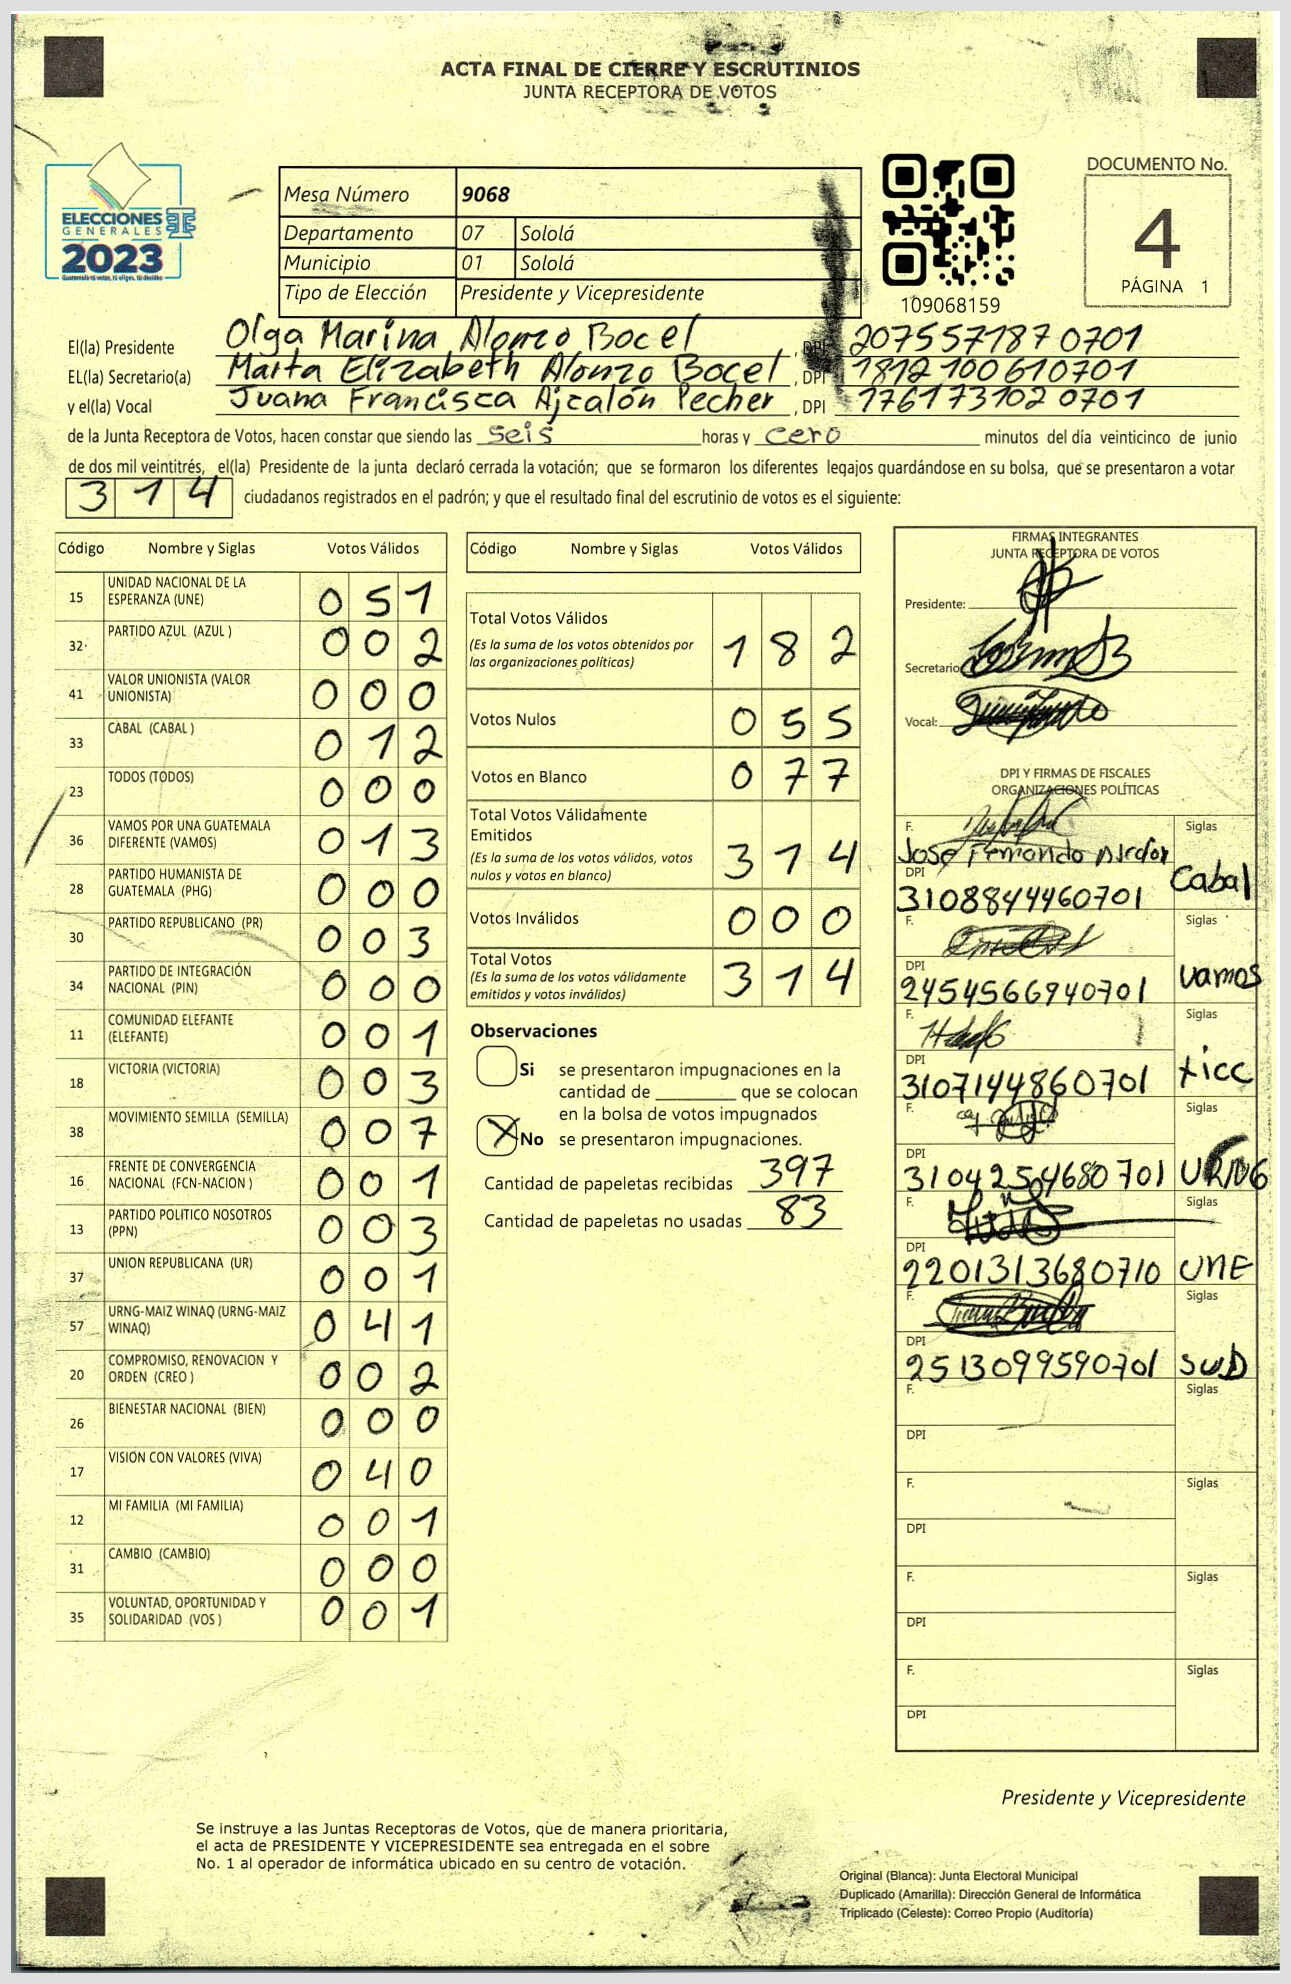 ACTA FINAL DE CIERRE Y ESCRUTINIOS
JUNTA RECEPTORA DE VOTOS
ELECCIONES
GENERALES
2023
Guatemala tú votas, tú eliges, tú decides
Mesa Número 9068
Departamento 07 Sololá
Municipio 01 Sololá
Tipo de Elección Presidente y Vicepresidente
109068159
DOCUMENTO No.
4
PÁGINA 1
El(la) Presidente Olga Marina Alonzo Bocel, DPI 2075571870701
EL(la) Secretario(a) Marta Elizabeth Alonzo Bocel, DPI 1812100610701
y el(la) Vocal Juana Francisca Ajcalón Pecher, DPI 1761731020701
de la Junta Receptora de Votos, hacen constar que siendo las seis horas y cero minutos del día veinticinco de junio
de dos mil veintitrés, el(la) Presidente de la junta declaró cerrada la votación; que se formaron los diferentes legajos guardándose en su bolsa, que se presentaron a votar
314 ciudadanos registrados en el padrón; y que el resultado final del escrutinio de votos es el siguiente:
Código Nombre y Siglas Votos Válidos
15 UNIDAD NACIONAL DE LA ESPERANZA (UNE) 051
32 PARTIDO AZUL (AZUL ) 002
41 VALOR UNIONISTA (VALOR UNIONISTA) 000
33 CABAL (CABAL ) 012
23 TODOS (TODOS) 000
36 VAMOS POR UNA GUATEMALA DIFERENTE (VAMOS) 013
28 PARTIDO HUMANISTA DE GUATEMALA (PHG) 000
30 PARTIDO REPUBLICANO (PR) 003
34 PARTIDO DE INTEGRACIÓN NACIONAL (PIN) 000
11 COMUNIDAD ELEFANTE (ELEFANTE) 001
18 VICTORIA (VICTORIA) 003
38 MOVIMIENTO SEMILLA (SEMILLA) 007
16 FRENTE DE CONVERGENCIA NACIONAL (FCN-NACION ) 001
13 PARTIDO POLITICO NOSOTROS (PPN) 003
37 UNION REPUBLICANA (UR) 001
57 URNG-MAIZ WINAQ (URNG-MAIZ WINAQ) 041
20 COMPROMISO, RENOVACION Y ORDEN (CREO ) 002
26 BIENESTAR NACIONAL (BIEN) 000
17 VISION CON VALORES (VIVA) 040
12 MI FAMILIA (MI FAMILIA) 001
31 CAMBIO (CAMBIO) 000
35 VOLUNTAD, OPORTUNIDAD Y SOLIDARIDAD (VOS ) 001
Código Nombre y Siglas Votos Válidos
Total Votos Válidos 182
(Es la suma de los votos obtenidos por
las organizaciones políticas)
Votos Nulos 055
Votos en Blanco 077
Total Votos Válidamente
Emitidos 314
(Es la suma de los votos válidos, votos
nulos y votos en blanco)
Votos Inválidos 000
Total Votos 314
(Es la suma de los votos válidamente
emitidos y votos inválidos)
Observaciones
Si se presentaron impugnaciones en la
cantidad de ________ que se colocan
en la bolsa de votos impugnados
X No se presentaron impugnaciones.
Cantidad de papeletas recibidas 397
Cantidad de papeletas no usadas 83
FIRMAS INTEGRANTES
JUNTA RECEPTORA DE VOTOS
Presidente:
Secretario
Vocal:
DPI Y FIRMAS DE FISCALES
ORGANIZACIONES POLÍTICAS
F. Siglas
Jose Fernando
DPI
3108844460701 Cabal
F. Siglas
DPI
2454566940701 vamos
F. Siglas
DPI
3107144860701 ticc
F. Siglas
DPI
31042504680701 URNG
F. Siglas
DPI
2201313680710 UNE
F. Siglas
DPI
2513099590701 SUD
F. Siglas
DPI
F. Siglas
DPI
F. Siglas
DPI
F. Siglas
DPI
Presidente y Vicepresidente
Se instruye a las Juntas Receptoras de Votos, que de manera prioritaria,
el acta de PRESIDENTE Y VICEPRESIDENTE sea entregada en el sobre
No. 1 al operador de informática ubicado en su centro de votación.
Original (Blanca): Junta Electoral Municipal
Duplicado (Amarilla): Dirección General de Informática
Triplicado (Celeste): Correo Propio (Auditoría)